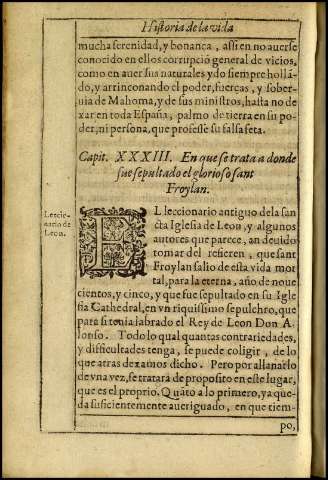 Historia de la vida
mucha serenidad, y bonança, assi en no auerse
conocido en ellos corrupció general de vicios,
como en auer sus naturales ydo siempre hollá-
do, y arrinconando el poder, fuerças, y sober-
uia de Mahoma, y de sus ministros, hasta no de
xar en toda España, palmo de tierra en su po-
der, ni persona, que professe su falsa seta.
Capit. XXXIII. En que se trata a donde
fue sepultado el glorioso sant
Froylan.
Leccio-
nario de
Leon.
EL leccionario antiguo de la san
cta Iglesia de Leon, y algunos
autores que parece, an deuido
tomar del refieren, que sant
Froylan salio de esta vida mor
tal, para la eterna, año de noue
cientos, y cinco, y que fue sepultado en su Igle
sia Cathedral, en vn riquissimo sepulchro, que
para si tenia labrado el Rey de Leon Don A-
lonso. Todo lo qual quantas contrariedades,
y difficultades tenga, se puede coligir, de lo
que atras dexamos dicho. Pero por allanarlo
de vna vez, se tratará de proposito en este lugar,
que es el proprio. Quáto a lo primero, ya que-
da suficientemente aueriguado, en que tiem-
po,